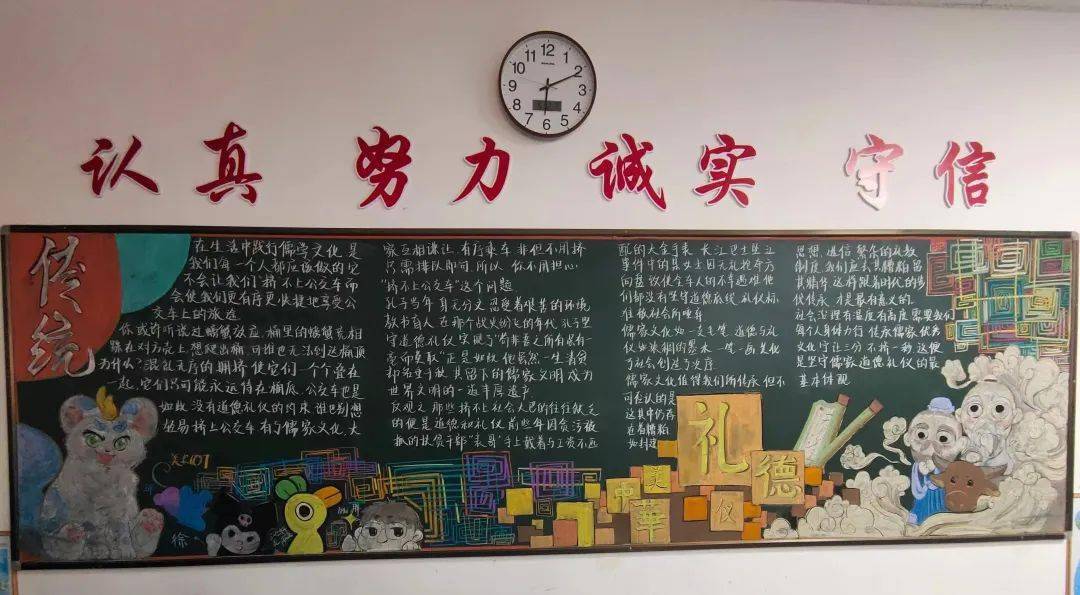 认真 努力 诚实 守信
传统
在生活中践行儒学文化,是
我们每一个人都应该做的,它
不会让我们"挤不上公交车"而
会使我们更有序更快捷地享受公
交车上的旅途
你或许听说过螃蟹效应,桶里的螃蟹竞相
踩在对方壳上想爬出桶,可谁也无法到达桶顶
为什么?混乱无序的拥挤使它们一个个叠在
一起,它们只可能永远待在桶底.公交车也是
如此,没有道德礼仪的约束,谁也别想
轻易挤上公交车有了儒家文化,大
家互相谦让,有序乘车,非但不用挤
只需排队即可,所以,你不用担心
"挤不上公交车"这个问题
孔子当年,身无分文,忍受着艰苦的环境
教书育人,在那个战火纷飞的年代,孔子坚
守道德礼仪,实现了"苟非吾之所有,虽一
毫而莫取"正是如此,他虽然一生清贫
世界文明的一道丰厚遗产
反观之,那些挤不上社会人巴的往往缺乏
的便是道德和礼仪,前些年因贪污被
抓的扶贫干部"表哥"手上戴着与工资不匹
配的大金手表,长江巴士坠江
事件中的某女士因无礼抢夺方
向盘致使全车人的不幸遇难,他
们都没有坚守道德底线,礼仪标
准被社会所唾弃
儒家文化如一支毛笔,道德与礼
仪如浓稠的墨水,一笔一画勾化
了社会创造了文序
儒家文化值得我们所传承,但不
可否认的是
这其中仍存
在着糟粕
如封建
思想,迷信,繁杂的礼教
制度,我们应去其糟粕,留
其精华,这样跟着时代的步
伐传承,才是最有意义的.
社会治理有温度有高度,需要我们
每个人身体力行,传承儒家优秀
文化,守上三分,不挤一挤,这便
是坚守儒家道德礼仪的最
基本体现
礼
德
美
中
华
仪
徐